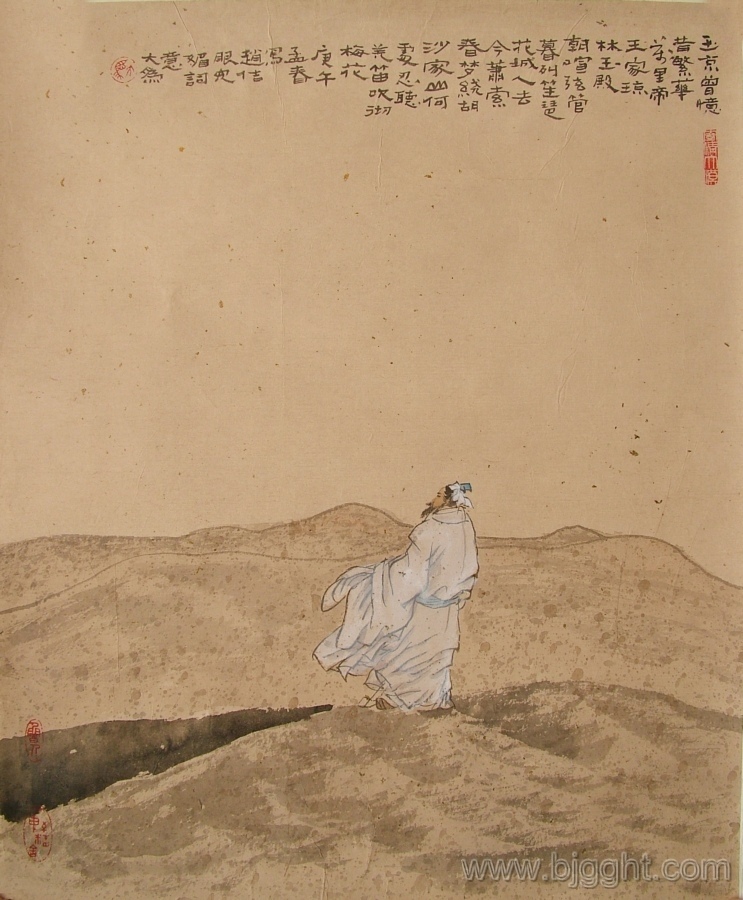 玉京曾憶
昔繁華
萬里帝
王家琼
林玉殿
朝喧弦管
暮列笙琶
花城人去
今蕭索
春梦繞胡
沙家山何
處忍聽
羌笛吹彻
梅花
庚午
孟春
寫
趙佶
眼兒
媚詞
意
大為
www.bjgght.com